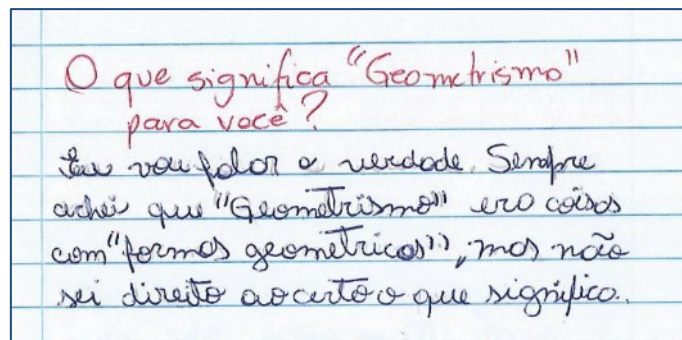 O que significa "Geometrismo"
para você?
Eu vou falar a verdade. Sempre
achei que "Geometrismo" era coisas
com "formas geometricas", mas não
sei direito ao certo o que significa.